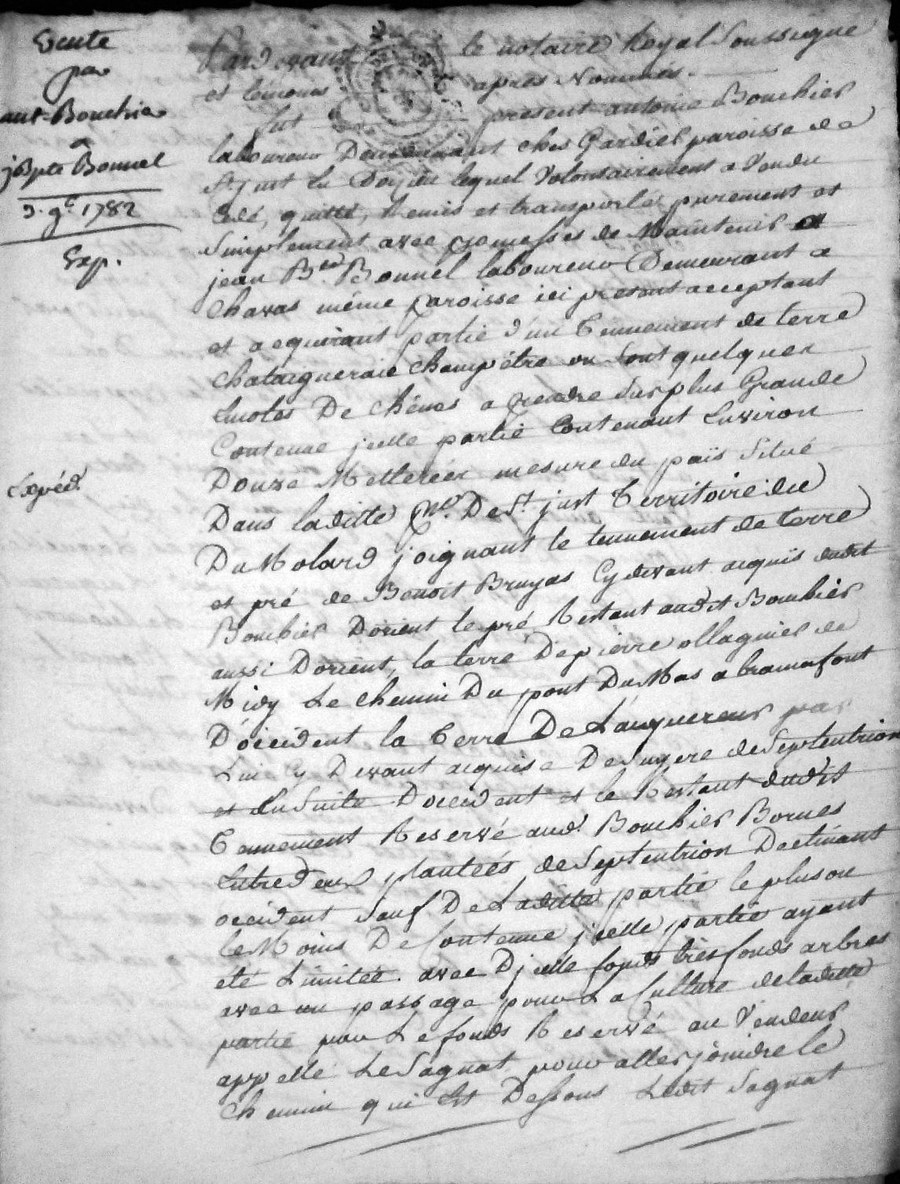 Vente
par
ant. Bouchier
a
jbpte Bonnel
3. 9e. 1782
Exp.
Expéd.
Pardevant le notaire Royal Soussigné
et temoins après Nommés.
fut present antoine Bouchier
laboureur Demeurant chés Gardiel paroisse de
St just lequel Volontairement a Vendu
Cedé, quitté, Remis et transporté purement et
Simplement avec promesses de Maintenir a
jean Bte. Bonnel laboureur Demeurant a
Chavas même paroisse ici present acceptant
et acquerant partie d'un tennement de terre
Chataigneraie Champêtre ou sont quelques
De chênes a prendre Sur plus Grande
Contenue jcelle partie Contenant Environ
Douze Metterées mesure du païs Situé
Dans laditte De St. just territoire du
Du Molard joignant le tennement de terre
et pré de Benoit Bruyas Cy devant acquis dudit
Bouchier D'orient le pré Restant audit Bouchier
aussi D'orient, la terre De pierre ollagnier de
Midy Le Chemin Du pont Du Mas a bramafont
D'occident la terre De par
Lui Cy Devant acquise De de Septentrion
et Ensuite D'occident et le Restant dudit
tennement Reservé aud. Bouchier Bornes
Entre deux plantées, de Septentrion Declinant
occident Sauf De Laditte partie le plus ou
le Moins De Contenue jcelle partie ayant
eté Limitée. avec D'jcelle fonds tresfonds arbres
avec un passage pour La Culture de laditte
partie par Le fonds Reservé au Vendeur
appellé Le Sagnat pour aller joindre le
Chemin qui Est Dessous Ledit Sagnat